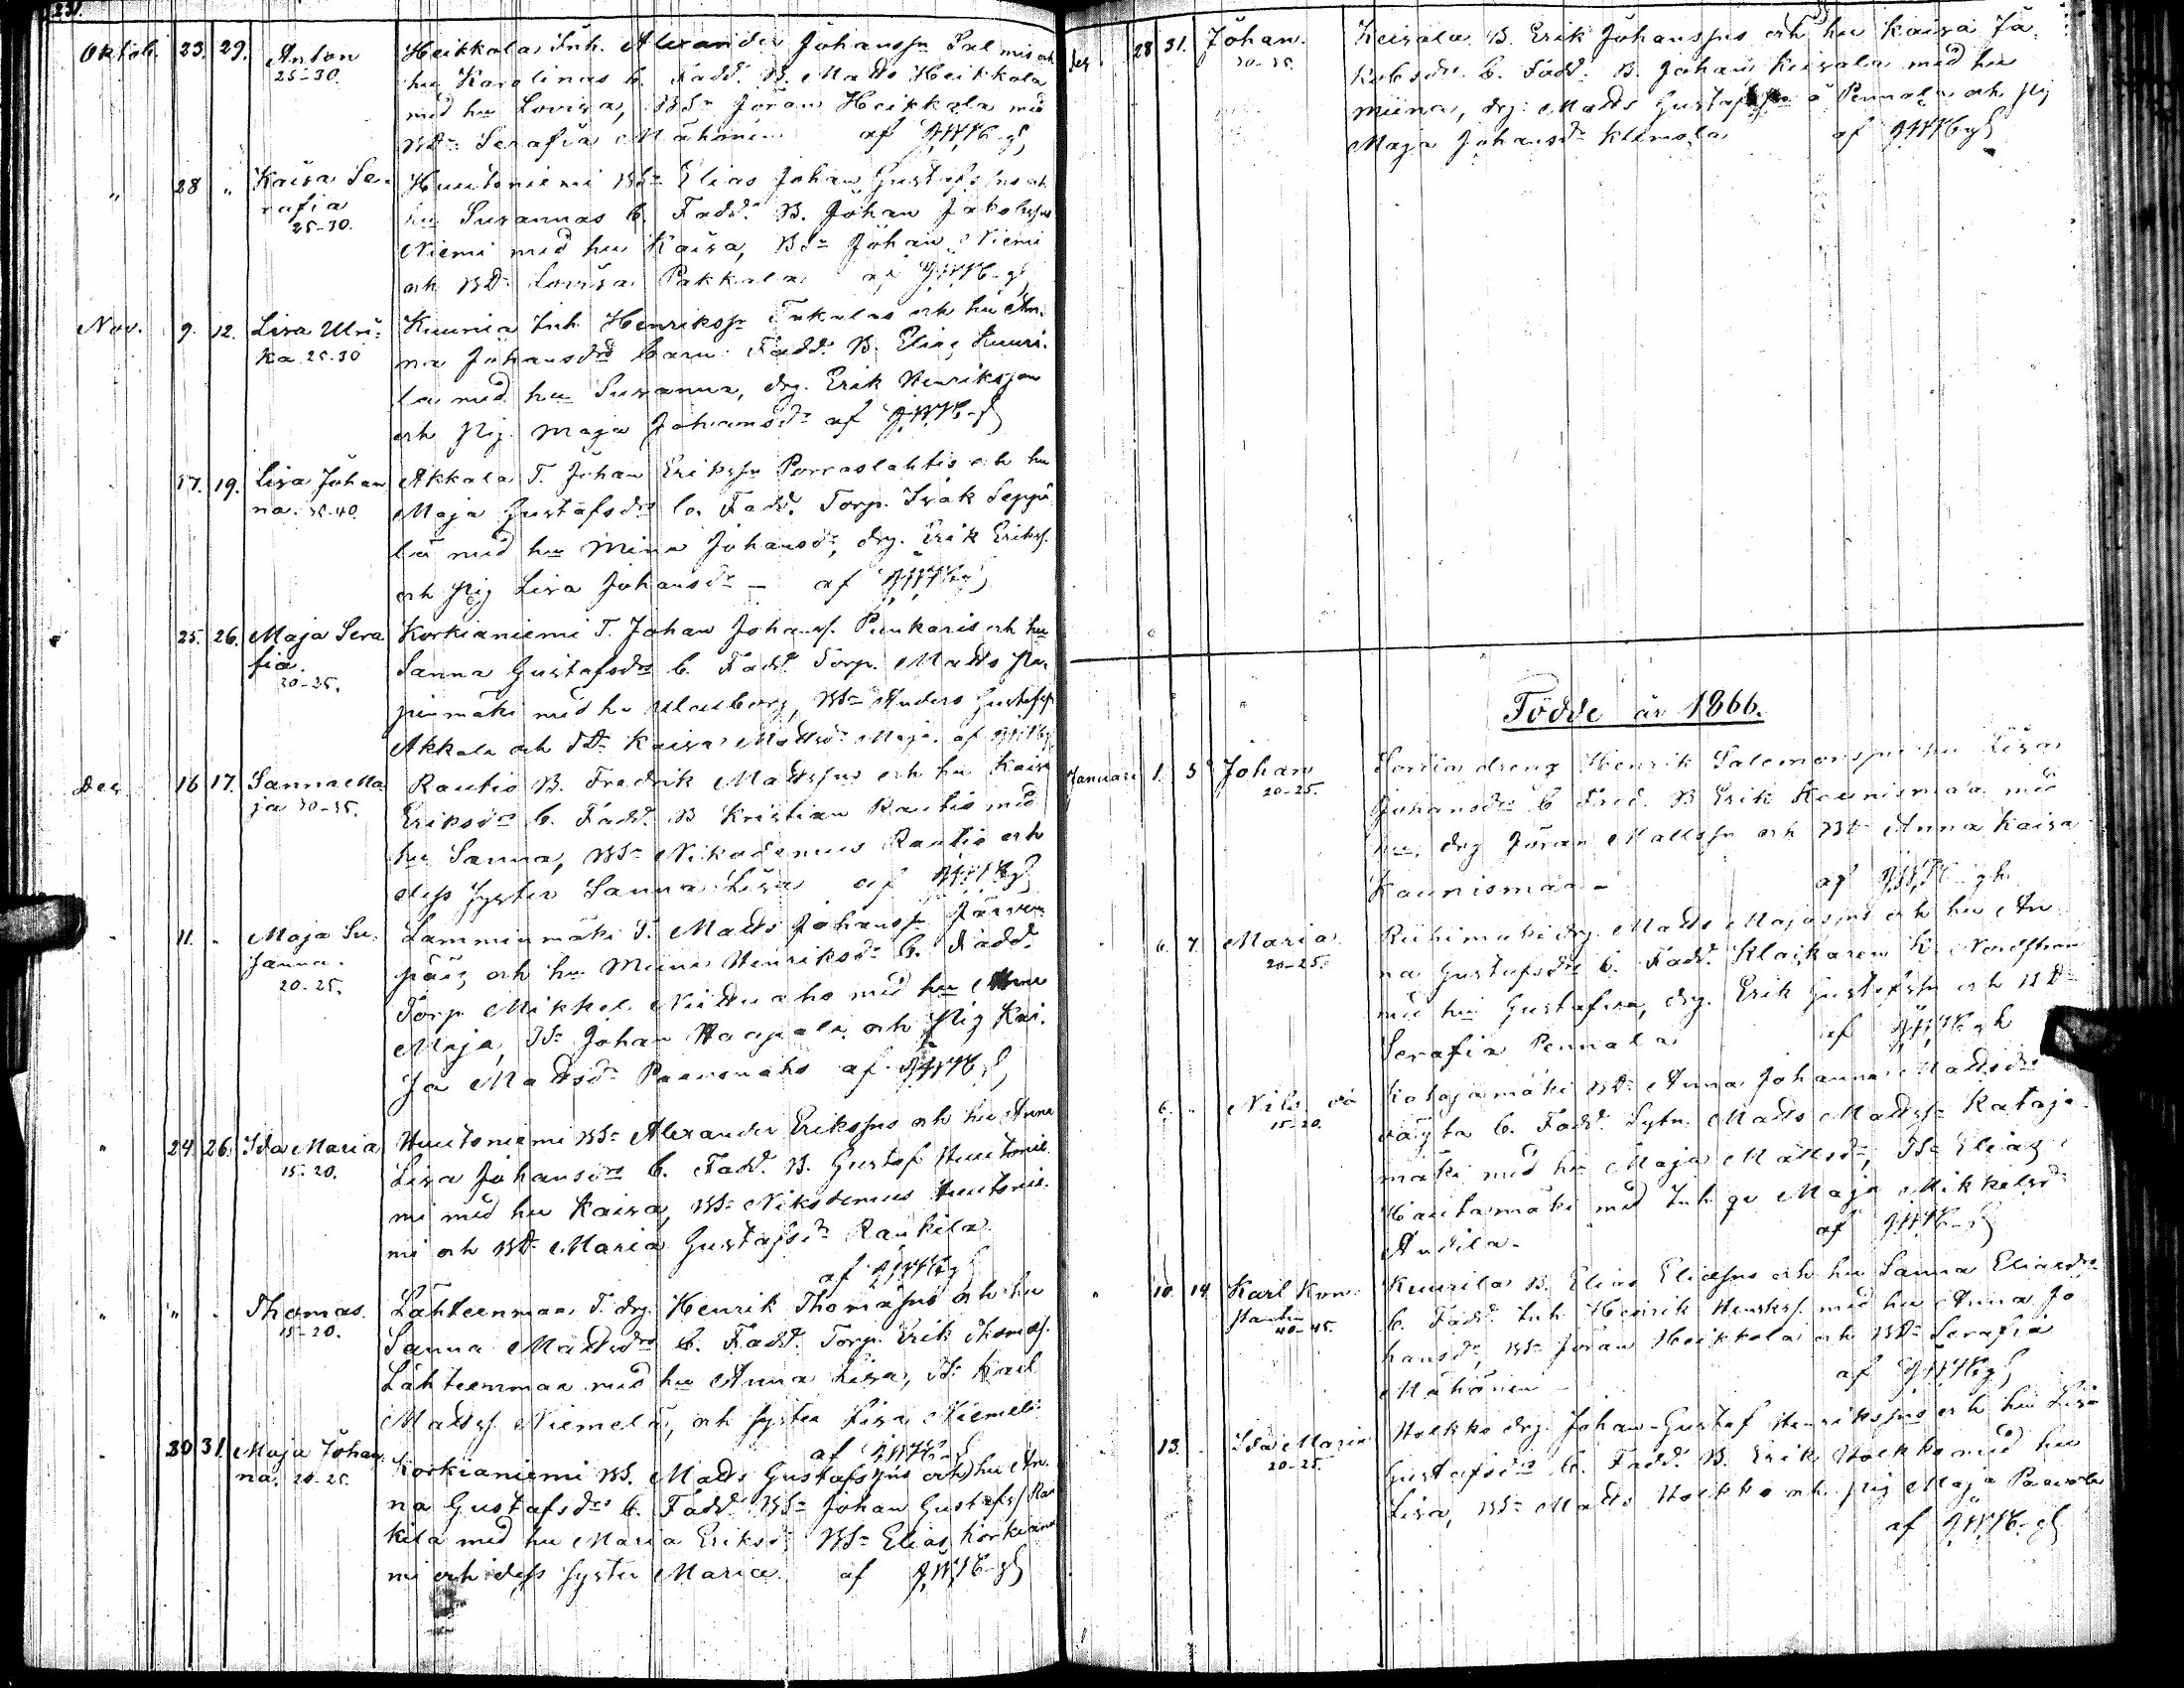 231.
Oktob. 23. 29. Anton Heikkola Inh. Alexander Johanssn Palmis och
25-30. hu Karolinas b. Fadd. B. Matts Heikkola
med hu Lovisa, BSn Jöran Heikkola med
BDr Serafia Mähönen af
" 28 " Kaisa Se- Huutoniemi BSn Elias Johan Gustafssns och
rafia hu Susannas b. Fadd. B. Johan Jakobssn
25-30. Niemi med hu Kaisa, BSn Johan Niemi
och BDr Lovisa Pakkala af
Nov. 9. 12. Lisa Ulri- Kuuria Inh. Henrikssn och hu An-
ka 25-30 na Johansdrs barn Fadd. B. Elias Kuuri-
la med hu Susanna, drg. Erik Henriksson
och pig. Maja Johansdr af
17. 19. Lisa Johan Akkala T. Johan Erikssn Porraslahtis och hu
na. 35-40. Maja Gustafsdrs b. Fadd. Torp. Isak Seppä
lä med hu Mina Johansdr, drg. Erik Erikss.
och pig Lisa Johansdr – af
25. 26. Maja Sera Korkianiemi T. Johan Johanss. Punkaris och hu
fia. Sanna Gustafsdrs b. Fadd. Torp. Matts
20-25. med hu Walborg, BSn Anders Gustafss
Akkala och Dr Kaisa Mattsdr af
Dec. 16 17. Sanna Ma Rautio B. Fredrik Mattssns och hu Kaisa
ja 30-35. Eriksdrs b. Fadd. B Kristian Rautio med
hu Sanna, BSn Nikodemus Rautio och
dess syster Sanna Lisa af
" 11. " Maja Su- Lamminmäki T. Matts Johanssn Järven-
sanna. pääs och hu Miina Henriksdr b. Fadd.
20-25. Torp Mikkel med hu Anna
Maja, Sn Johan Haapala och pig Kai-
sa Mattsdr af
" 24. 26. Ida Maria Huutoniemi BSn Alexander Erikssns och hu Anna
15-20. Lisa Johansdrs b. Fadd. B. Gustaf Huutonie
mi med hu Kaisa, BSn Nikodemus Huutonie-
mi och BDr Maria Gustafsdr Rankila
af
" " " Thomas. Lähteenmaa T. drg. Henrik Thomassns och hu
15-20. Sanna Mattsdrs b. Fadd. Torp. Erik Thomass.
Lähteenmaa med hu Anna Lisa, Sn Karl
Mattss. Niemelä, och syster Lisa Niemelä
af
" 30 31. Maja Johan Korkianiemi BS. Matts Gustafssns och hu An-
na. 20-25. na Gustafsdrs b. Fadd. BSn Johan Gustafss Ran
kila med hu Maria Eriksdr, BSn Elias Korkianie
mi och dess syster Maria. af
Dec. 28 31. Johan. Keisala B. Erik Johanssns och hu Kaisa Ja-
30-35. kobsdrs b. Fadd. B. Johan Keisala med hu
Miina, drg. Matts Gustafssn å Pennala och pig
Maja Johansdr Klemola af
Födde år 1866.
Januari 1. 5 Johan dreng Henrik Salomonssns hu Lisa
20-25. Johansdrs b Fadd. B Erik Kaunismaa med
hu, drg Jöran Mattssn och BDr Anna Kaisa
Kaunismaa – af
" 6. 7. Maria Riihimäki drg. Matts och hu An-
20-25. na Gustafsdrs b. Fadd. Klockaren K. Nordström
med hu Gustafva, drg. Erik Gustafssn och BDr
Serafia Pennala af
6. " Nils oä Katajamäki BDr Anna Johanna Mattsdrs
15-20. oägta b. Fadd. Sytn. Matts Mattssn Kataja
mäki med hu Maja Mattsdr, Sn Elias
Hautamäki med Inh. qv Maja Mikkelsdr
Andila – af
" 10. 14. Karl Kon- Kuurila B. Elias Eliassns och hu Sanna Eliaedrs
stantin b. Fadd. Inh Henrik Henrikss. med hu Anna Jo
40-45. hansdr, BSn Jöran Heikkola och BDr Serafia
Mähönen – af
" 13. Ida Maria Holkko drg. Johan-Gustaf Henrikssns och hu Lisa
20-25. Gustafsdrs b. Fadd. B. Erik Holkko med hu
Lisa, BSn Matts Holkko och pig Maja Paavola
af